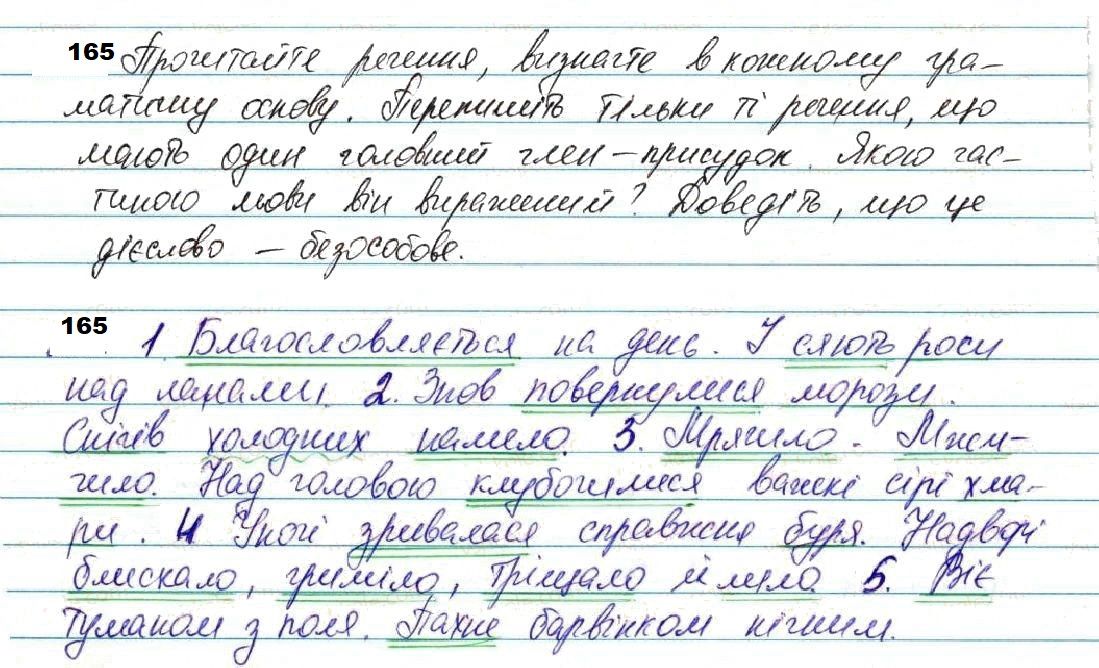 165 Прочитайте речення, визначте в кожному гра-
матичну основу. Перепишіть тільки ті речення, що
мають один головний член – присудок. Якою час-
тиною мови він виражений? Доведіть, що це
дієслово – безособове.
165
1 Благословляється на день. І сяють роси
над ланами. 2. Знов повернулися морози.
Снігів холодних намело. 3. Мрячило. Мжи-
чило. Над головою клубочилися важкі сірі хма-
ри. 4 Уночі зривалася справжня буря. Надворі
блискало, гриміло, тріщало й лило. 5. Віє
туманом з поля. Пахне барвінком ніжним.